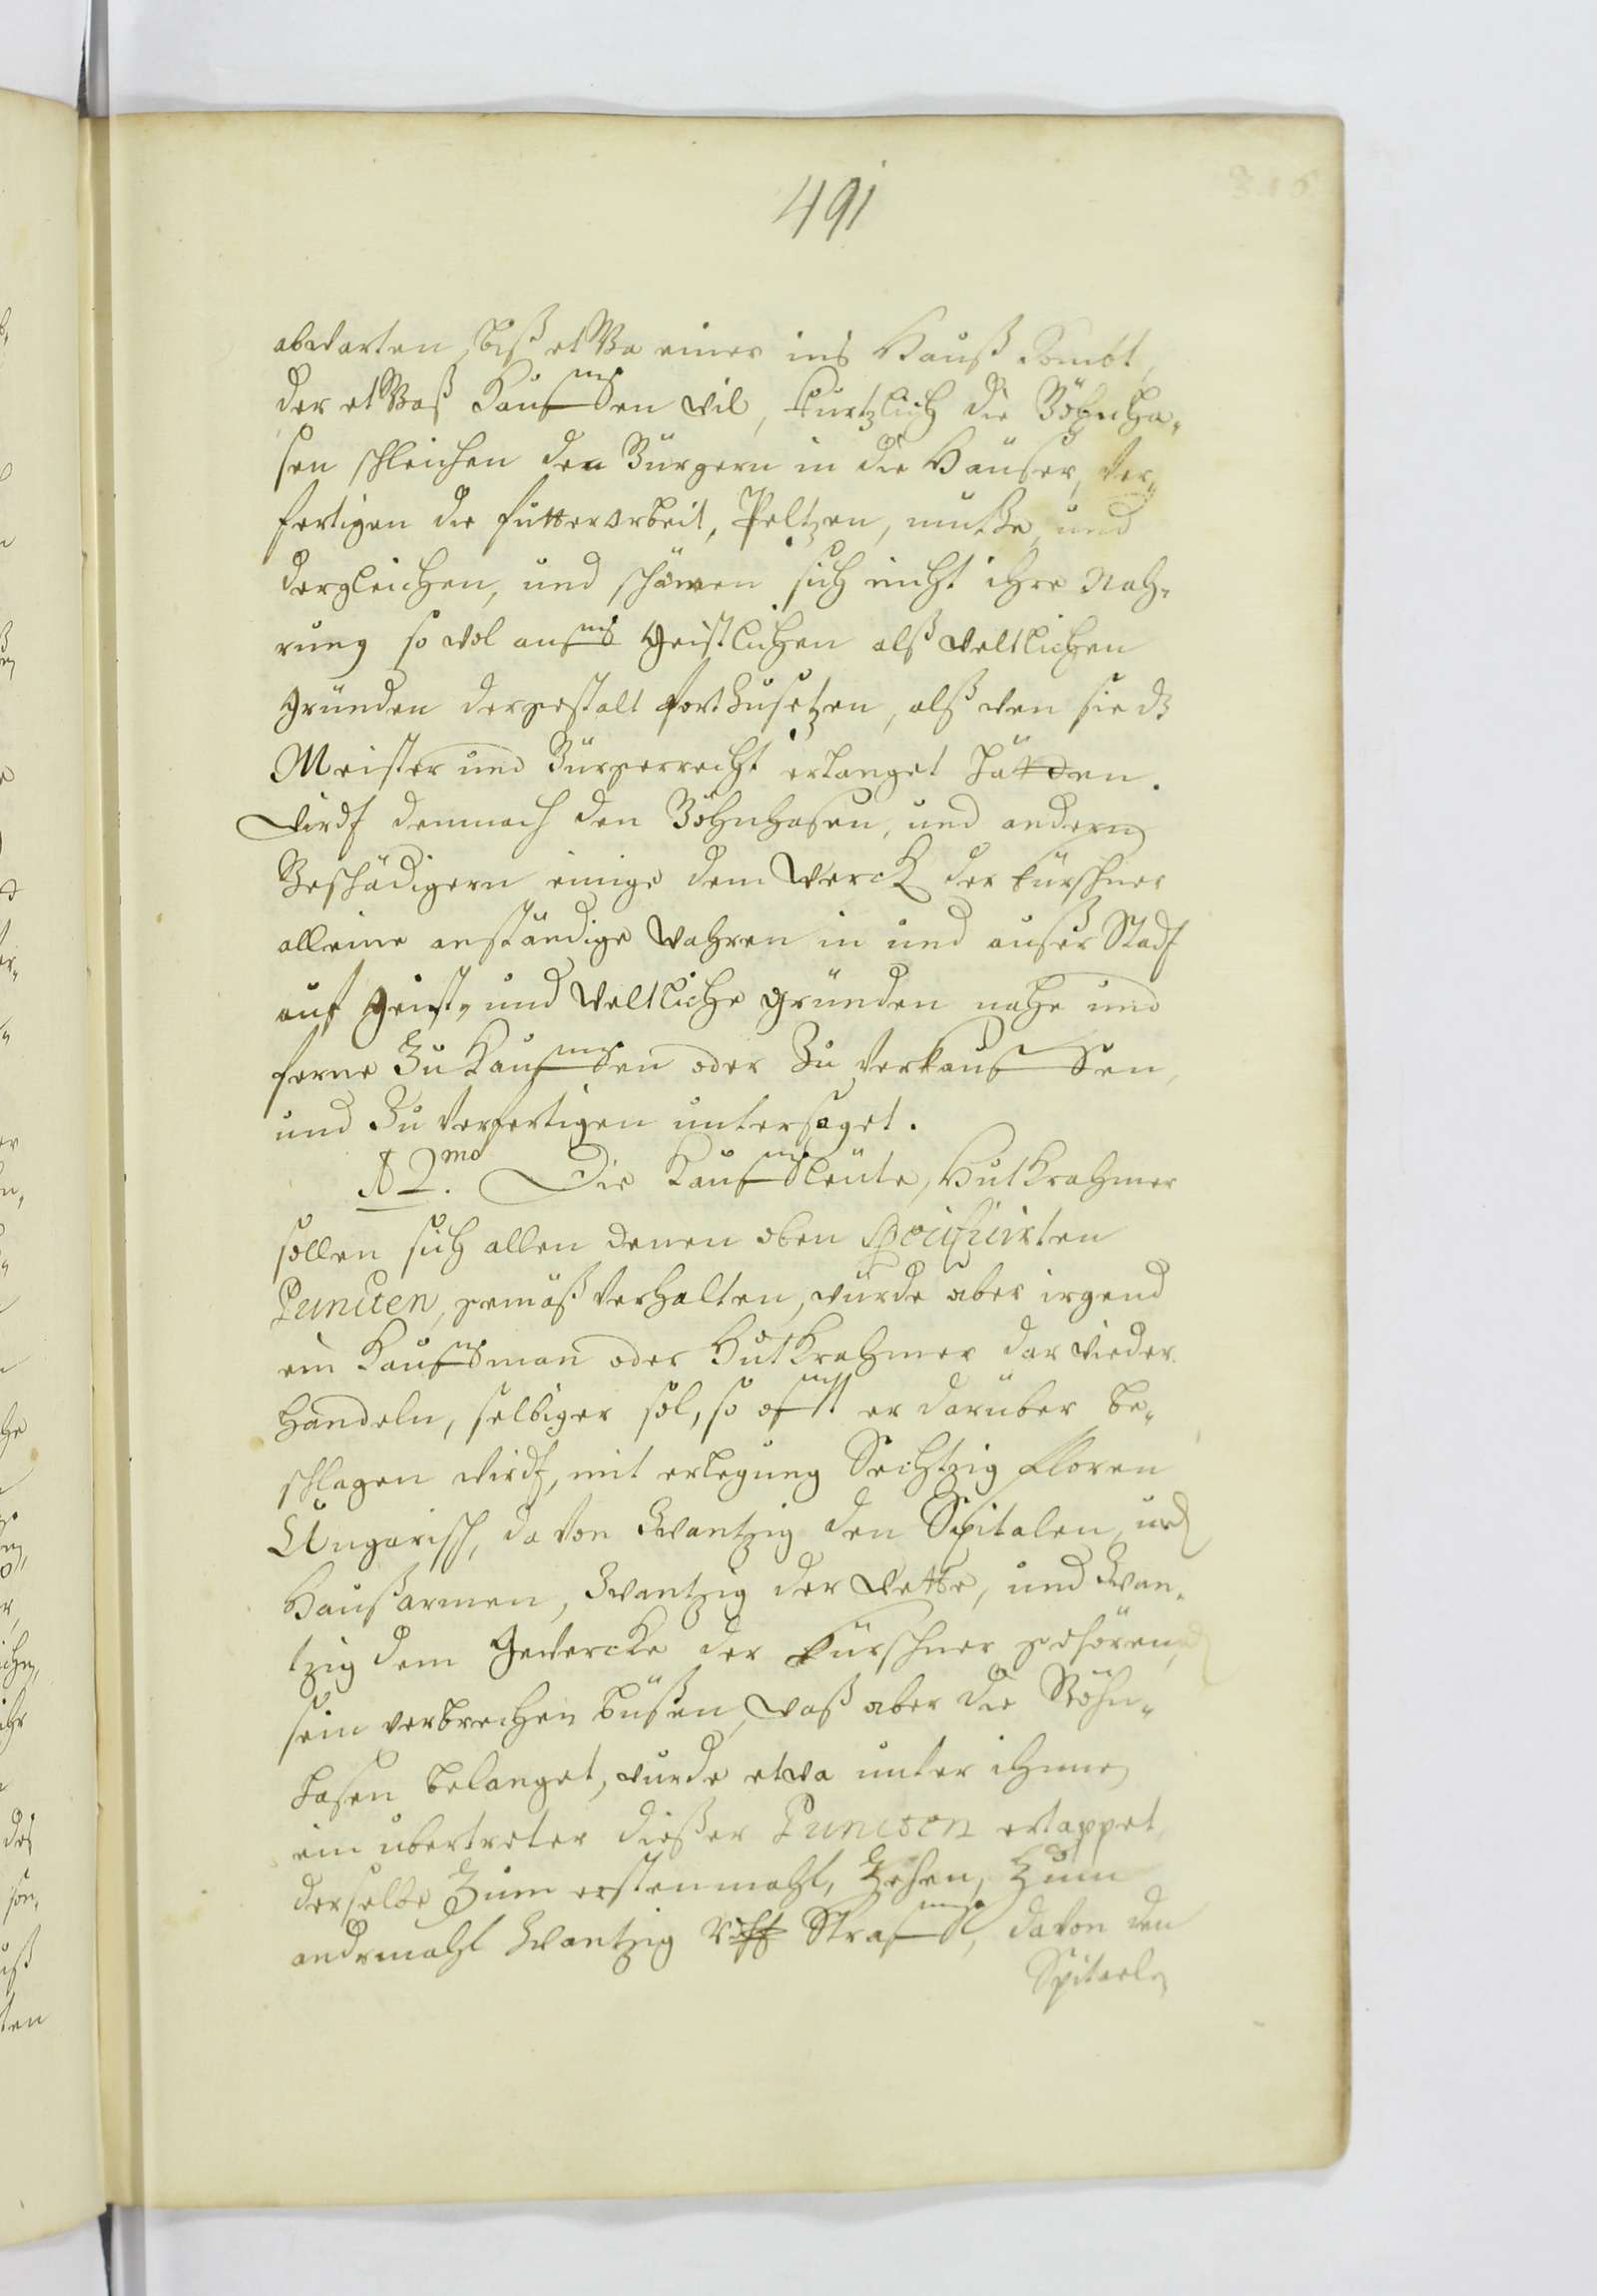 491
abwarten, biß etWa einer ins Hauß kombt,
der etWaß Kauffen wil, kürtzlich die Böhnha-
sen schleichen den Bürgern in die Häuser, ver-
fertigen die futterarbeit, Peltzen, mutze und
dergleichen, und schämen sich nicht ihre Nah-
rung so wol auff Geistlichen alß weltlichen
gründen dergestalt fortzusetzen, alß wen sie dz
Meister und Bürgerrecht erlanget hätten.
Wirdt demnach den Böhnhasen, und andern
Beschädigern einige dem Werck der kürschner
alleine anständige wahren in und außer Stadt
auf Geist- und weltliche gründen nahe und
ferne zu Kauffen oder zu verkauffen,
und zu verfertigen untersaget.
2mo. Die Kauffleüte, HutKrahmer
sollen sich allen denen oben specificirten
Puncten, gemäß verhalten, würde aber irgend
ein Kauffman oder HutKrahmer darwieder
handeln, selbiger sol, so offt er darüber be-
schlagen wirdt, mit erlegung Sechtzig floren
Ungarisch, davon zwantzig den Spitalen, und
Haußarmen, zwantzig der Wette, und zwan-
tzig dem Gewercke der kürschner gehören,
sein verbrechen büßen, waß aber die Böhn-
hasen belanget, wurde etwa unter ihnen
ein ubertreter dießer Puncten ertappet
derselbe zum erstenmahl, Zehen, zum
andrmahl zwantzig Straffe, davon den
Spitaeln